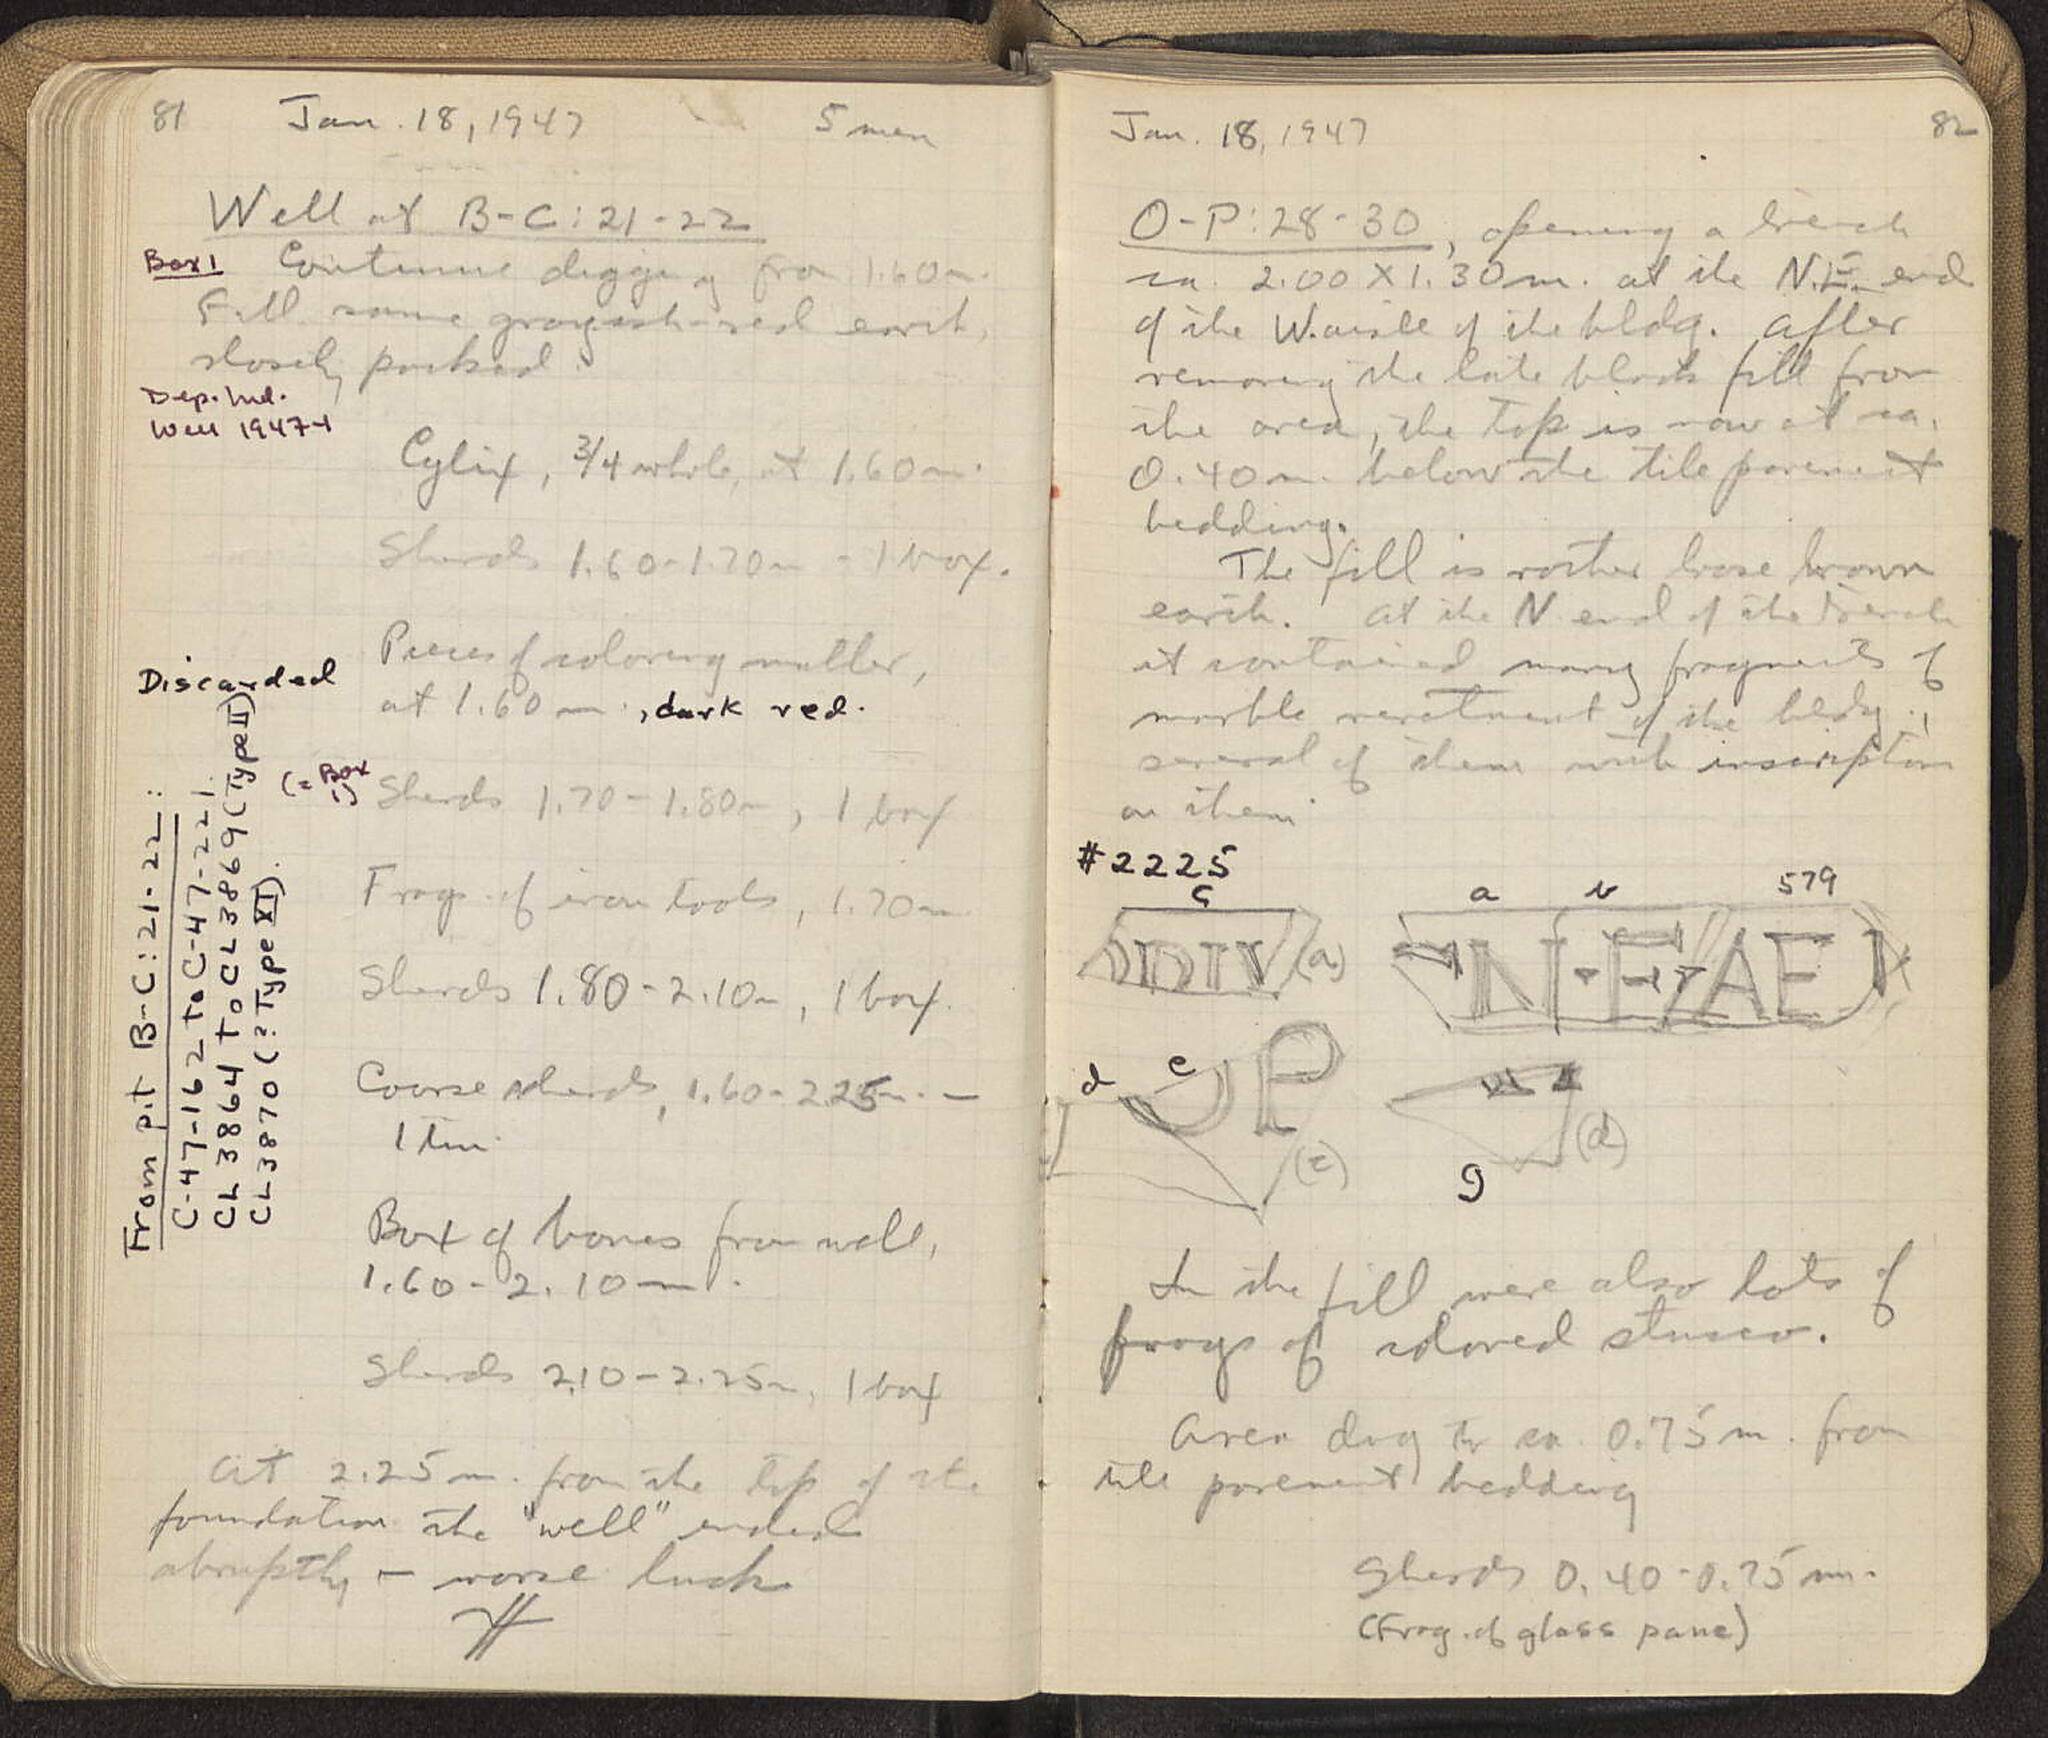 81 Jan. 18, 1947 5 men
Well at B-C:21-22
Box 1 Continue digging from 1.60m.
Fill same grayish-red earth,
closely packed.
Dep. Ind.
Well 1947-1
Cylix, 3/4 whole, at 1.60m.
Sherds 1.60-1.70m - 1 box.
Pieces of coloring matter,
at 1.60m., dark red.
Discarded
(= Box
1)
Sherds 1.70-1.80m, 1 box
Frags. of iron tools, 1.70m.
Sherds 1.80-2.10m, 1 box.
Coarse sherds, 1.60-2.25m. -
1 tin.
Box of bones from well,
1.60-2.10m.
Sherds 2.10-2.25m, 1 box
At 2.25m. from the top of the
foundation the "well" ended
abruptly - worse luck
From pit B-C:21-22:
C-47-162 to C-47-221
CL 3864 to CL 3869 (Type II)
CL 3870 (? Type XI).
Jan. 18, 1947 82
O-P:28-30, opening a trench
ca. 2.00 X 1.30m. at the N.E. end
of the W. aisle of the bldg. After
removing the late black fill from
the area, the top is now at ca.
0.40m. below the tile pavement
bedding.
The fill is rather loose brown
earth. At the N end of the trench
it contained many fragments of
marble revetment of the bldg.,
several of them with inscription
on them.
#2225
c
a b 579
DIV (a)
N·E AE
d e
P
(c)
(d)
g
In the fill were also lots of
frags of colored stucco.
Area dug to ca. 0.75m. from
tile pavement bedding
Sherds 0.40-0.75m.
(Frag. of glass pane)